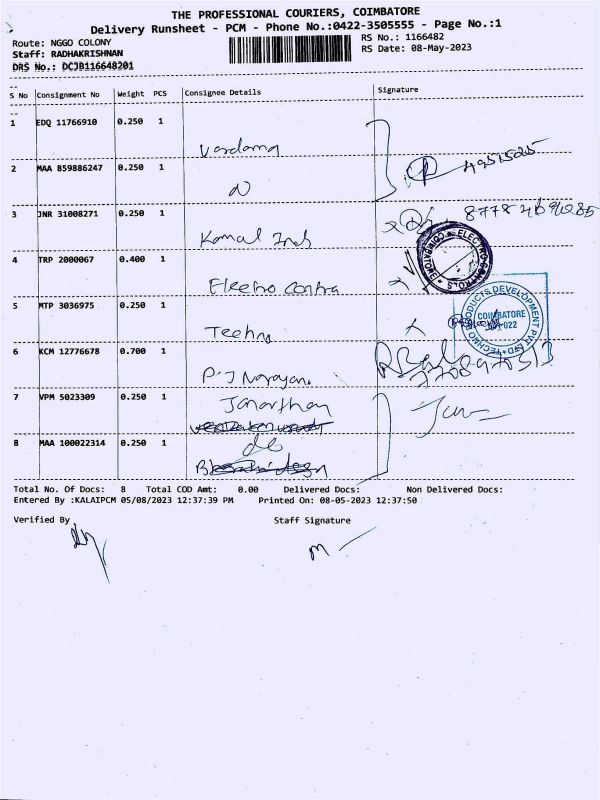 THE PROFESSIONAL COURIERS, COIMBATORE
Delivery Runsheet - PCM - Phone No.:0422-3505555 - Page No.:1
Route: NGGO COLONY RS No.: 1166482
Staff: RADHAKRISHNAN RS Date: 08-May-2023
DRS No.: DCJB116648201
S No Consignment No Weight PCS Consignee Details Signature
1 EDQ 11766910 0.250 1
Vardama
2 MAA 859886247 0.250 1
3 JNR 31008271 0.250 1
Kamal Ind
4 TRP 2000067 0.400 1
Electro Contra
ELECTRO CONTROLS COIMBATORE
5 MTP 3036975 0.250 1
Techno
TECHNO PRODUCTS DEVELOPMENT PVT LTD
COIMBATORE
6 KCM 12776678 0.700 1
P.J Narayan
7 VPM 5023309 0.250 1
Janarthan
8 MAA 100022314 0.250 1
do
Total No. Of Docs: 8 Total COD Amt: 0.00 Delivered Docs: Non Delivered Docs:
Entered By :KALAIPCM 05/08/2023 12:37:39 PM Printed On: 08-05-2023 12:37:50
Verified By Staff Signature